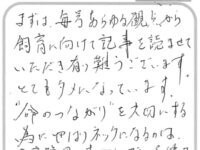 まずは、毎号あらゆる観点から
飼育に向けて記事を読ませて
いただき有り難うございます。
とてもタメになっています。
"命のつながり"を大切にする
為にやはりネックになるのは、